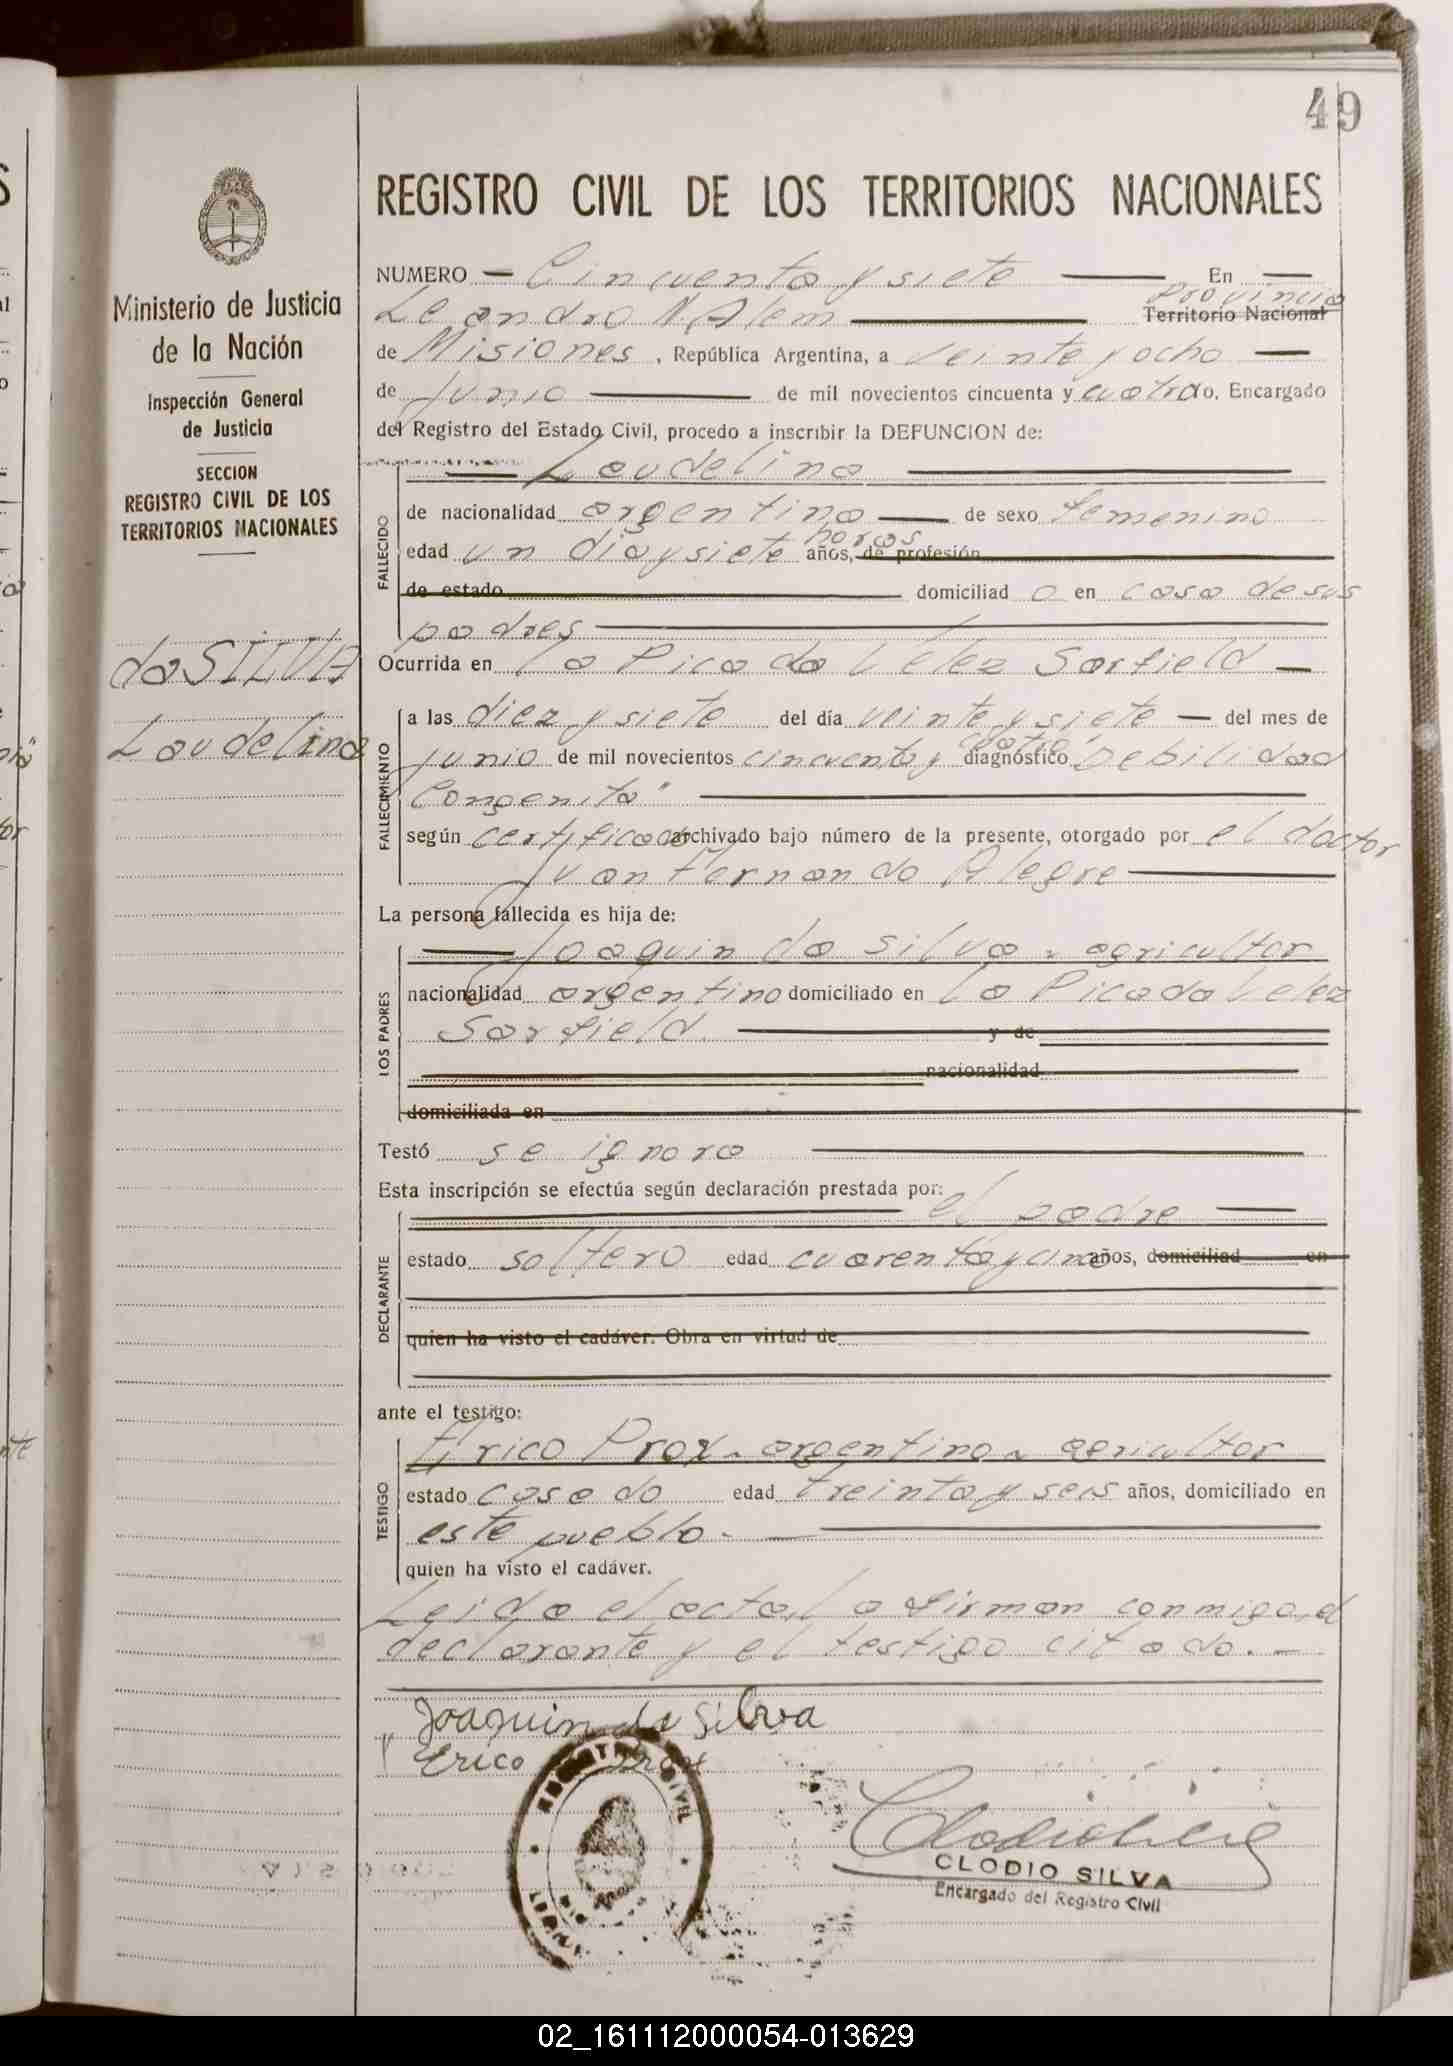 49
Ministerio de Justicia
de la Nación
Inspección General
de Justicia
SECCION
REGISTRO CIVIL DE LOS
TERRITORIOS NACIONALES
da SILVA
Laudelina
REGISTRO CIVIL DE LOS TERRITORIOS NACIONALES
NUMERO — Cincuenta y siete — En —
Provincia
Leandro N. Alem — Territorio Nacional
de Misiones, República Argentina, a veinte y ocho —
de junio — de mil novecientos cincuenta y cuatro, Encargado
del Registro del Estado Civil, procedo a inscribir la DEFUNCION de:
— Laudelina —
FALLECIDO
de nacionalidad argentina — de sexo femenino
horas
edad un dia y siete años, de profesión
de estado domiciliad a en casa de sus
padres —
Ocurrida en la Picada Velez Sarfield —
FALLECIMIENTO
a las diez y siete del día veinte y siete — del mes de
cuatro
junio de mil novecientos cincuenta y diagnóstico "Debilidad
Congenita" —
según certificado archivado bajo número de la presente, otorgado por el doctor
Juan Fernando Alegre —
La persona fallecida es hija de:
LOS PADRES
— Joaquin da Silva - agricultor
nacionalidad argentino domiciliado en la Picada Velez
Sarfield. — y de
nacionalidad
domiciliada en
Testó se ignora —
Esta inscripción se efectúa según declaración prestada por:
DECLARANTE
el padre —
estado soltero edad cuarenta y cinco años, domiciliad en
quien ha visto el cadáver. Obra en virtud de
ante el testigo:
TESTIGO
Erico Prox - argentino - agricultor
estado casado edad treinta y seis años, domiciliado en
este pueblo. —
quien ha visto el cadáver.
Leida el acta, la firman conmigo, el
declarante y el testigo citado. —
Joaquin da Silva
Erico Prox
REGISTRO CIVIL
CLODIO SILVA
Encargado del Registro Civil
02_161112000054-013629